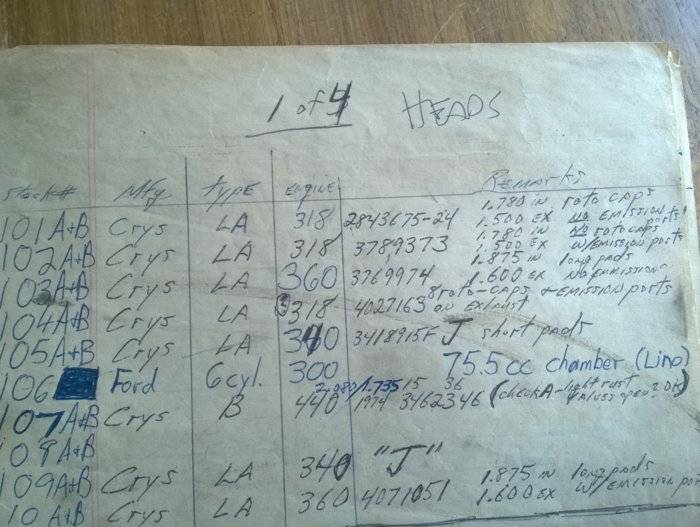 1 of 4 HEADS
Stock# Mfg. Type Engine Remarks
101 A+B Crys LA 318 2843675-24 1.780 IN roto caps
1.500 EX no emission ports
102 A+B Crys LA 318 3789373 1.780 IN No roto caps
1.500 EX w/emission ports
103 A+B Crys LA 360 3769974 1.875 in long pads
1.600 EX no emissions
104 A+B Crys LA 318 4027163 8 roto-caps + emission ports
on exhaust
105 A+B Crys LA 340 3418915F J short pads
106 Ford 6 cyl. 300 75.5 cc chamber (Lino)
107 A+B Crys B 440 2.080/1.735 15 36
1974 3462346 (check A-light rust
109 A+B
109 A+B Crys LA 340 "J"
10 A+B Crys LA 360 4071051 1.875 IN long pads
1.600 EX w/emission por